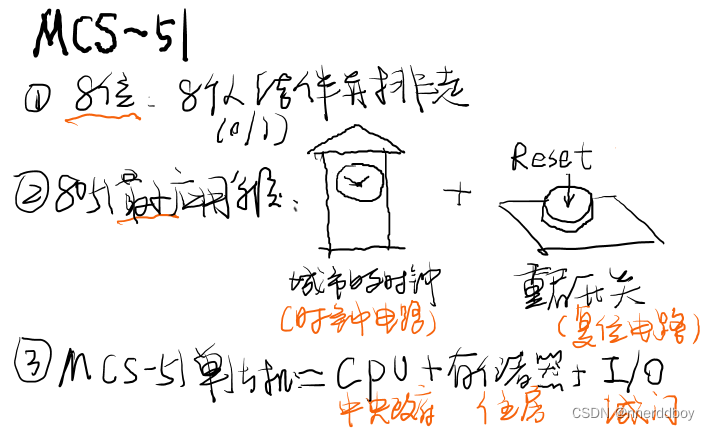 MCS~51
① 8位：8个人结伴并排走
(0/1)
Reset
② 8051最小应用系统：
+
城市的时钟 重启开关
(时钟电路) (复位电路)
③ MCS-51单片机=CPU+存储器+I/O
中央政府 住房 城门
CSDN @nnerddboy